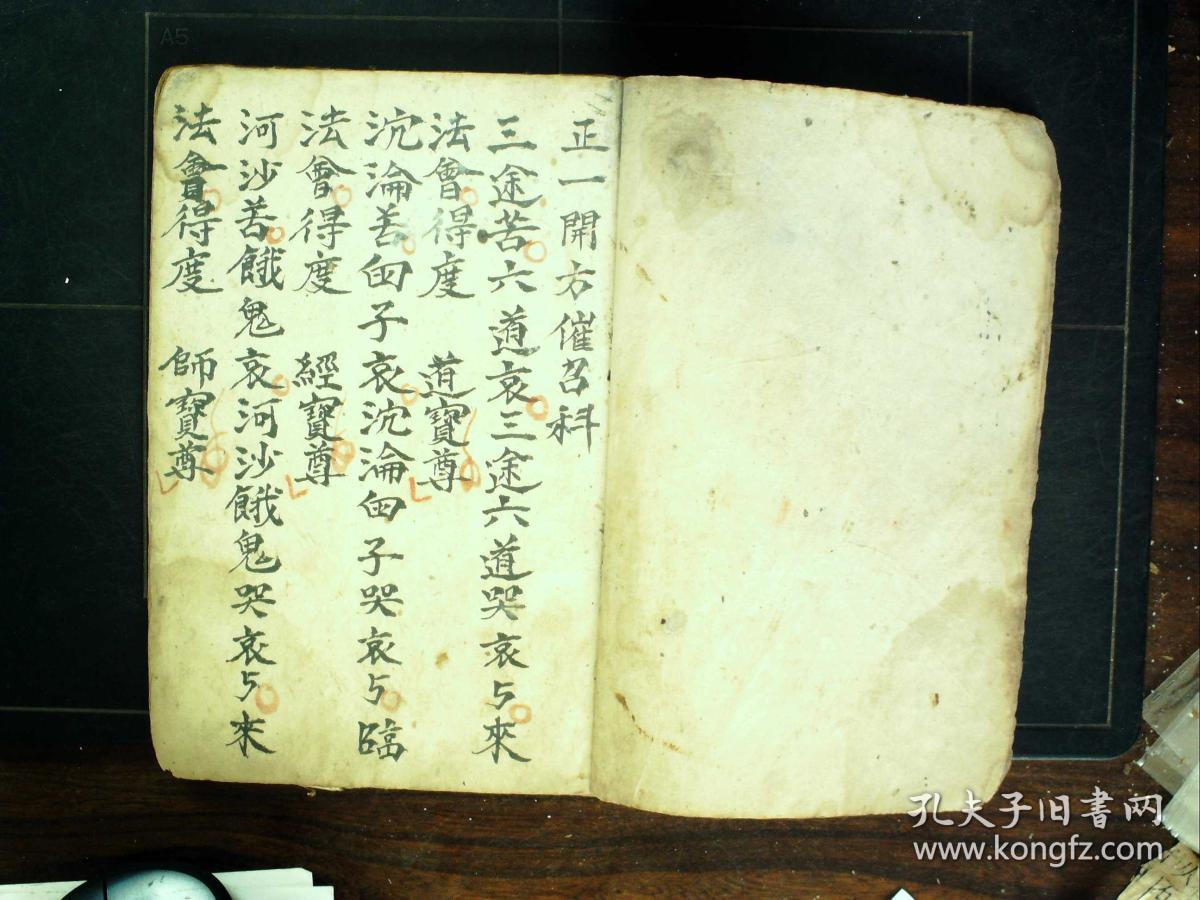 正一開方催召科
三途苦六道哀三途六道哭哀与來
法會得度　道寶尊
沉淪苦囬子哀沉淪囬子哭哀与臨
法會得度　經寶尊
河沙苦餓鬼哀河沙餓鬼哭哀与來
法會得度　師寶尊
A5
孔夫子旧書网
www.kongfz.com